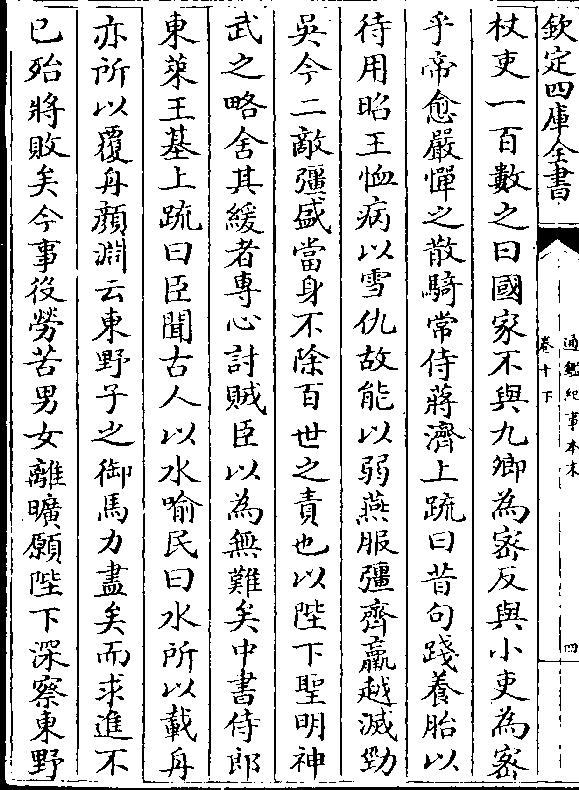 欽定四庫全書
通鑑紀事本末
卷十下
四
杖吏一百數之曰國家不與九卿為宻反與小吏為宻
乎帝愈嚴憚之散騎常侍蔣濟上疏曰昔句踐養胎以
待用昭王恤病以雪仇故能以弱燕服彊齊羸越滅勁
吳今二敵彊盛當身不除百世之責也以陛下聖明神
武之略舍其緩者專心討賊臣以為無難矣中書侍郎
東萊王基上疏曰臣聞古人以水喻民曰水所以載舟
亦所以覆舟顔淵云東野子之御馬力盡矣而求進不
已殆將敗矣今事役勞苦男女離曠願陛下深察東野